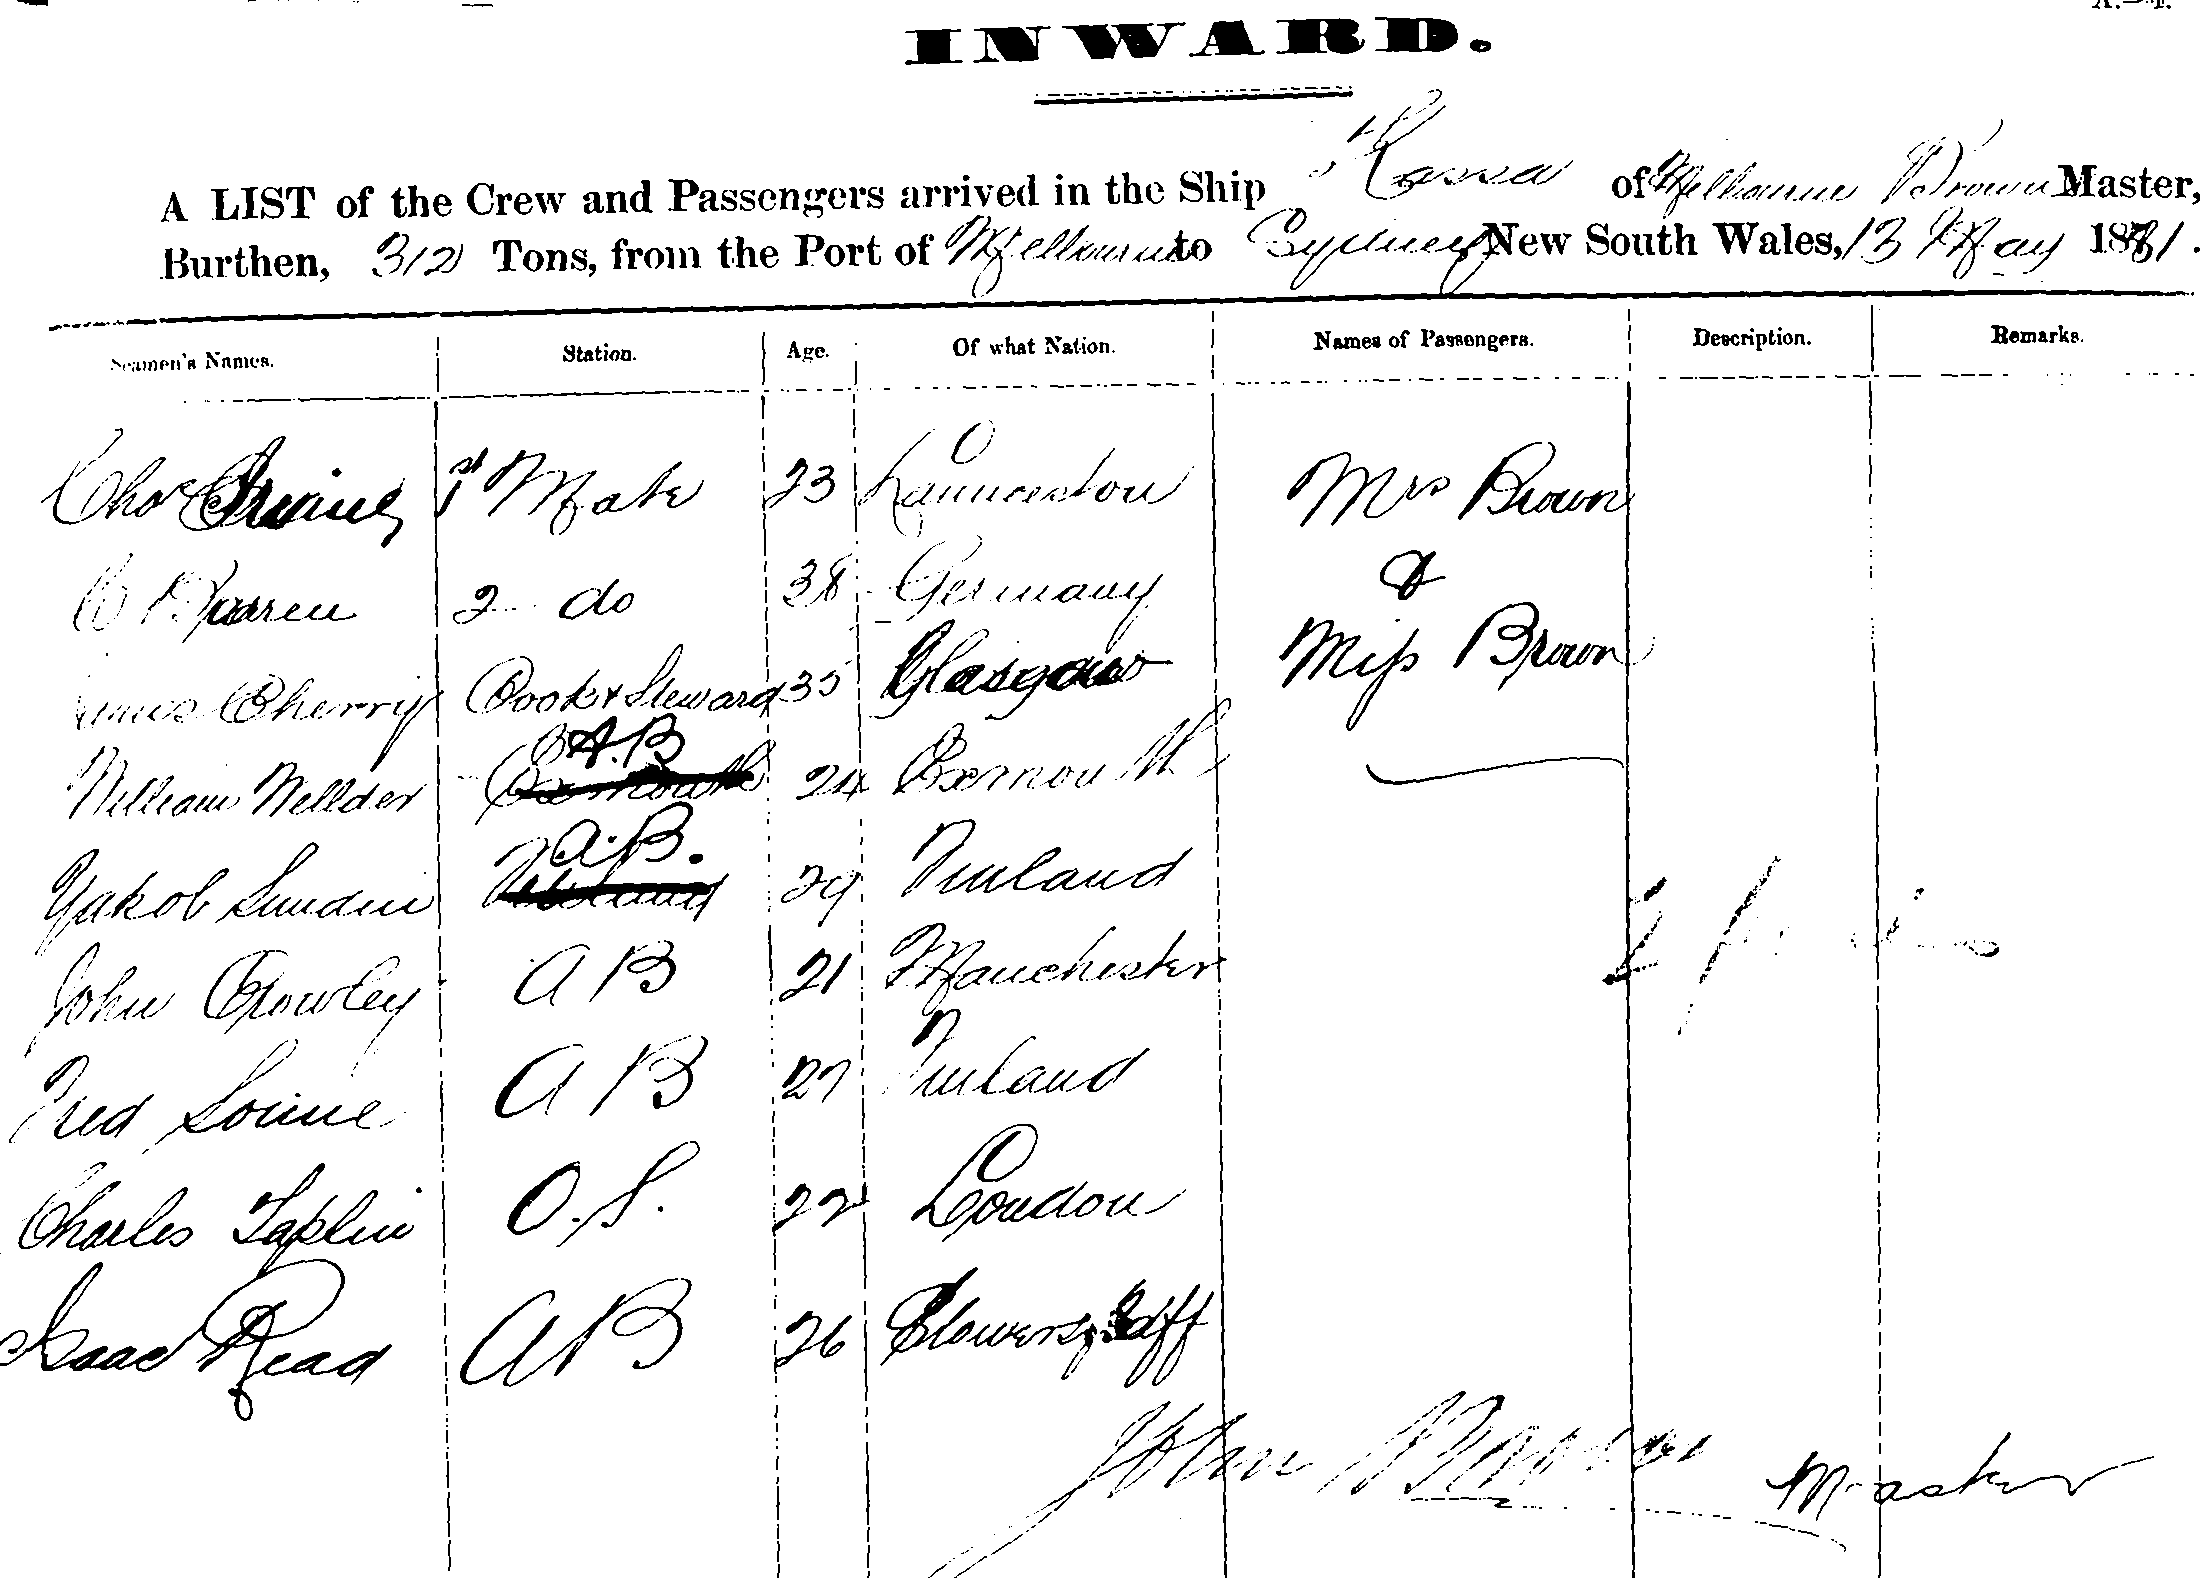 INWARD.
A LIST of the Crew and Passengers arrived in the Ship Kassa of Melbourne Brown Master,
Burthen, 312 Tons, from the Port of Melbourne to Sydney New South Wales, 13 May 1881.
Seamen's Names. Station. Age. Of what Nation. Names of Passengers. Description. Remarks.
Chas Irvine 1st Mate 23 Launceston Mrs Brown
C 2 do 38 Germany &
Cherry Cook & Steward 35 Glasgow Miss Brown
A.B
William Wellder Exmouth 24 Exmouth
A.B.
Yakob Lundin 29 Finland
John Crowley A B 21 Manchester
Fred A B 27 Finland
Charles Taplin O.S. 22 London
Isaac Read A B 26
John Brown Master